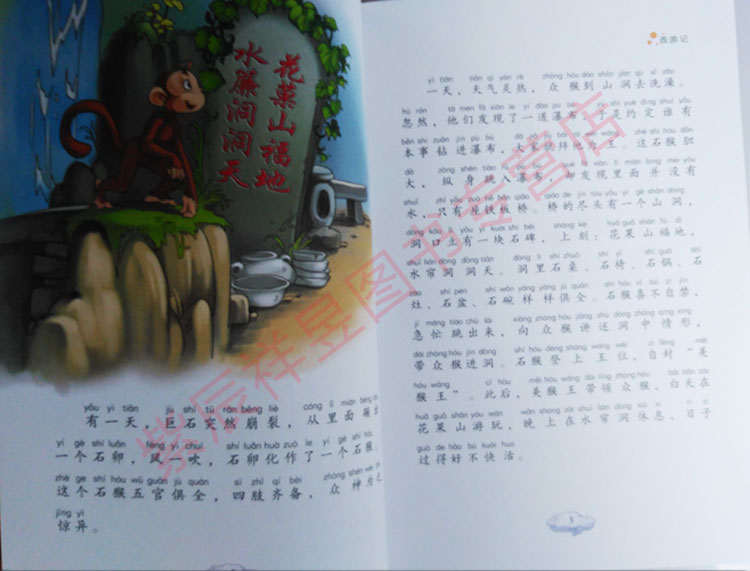 花菓山福地
水簾洞洞天
yǒu yì tiān jù shí tū rán bēng liè cóng lǐ miàn bèng
有一天，巨石突然崩裂，从里面蹦
yí gè shí luǎn fēng yì chuī shí luǎn huà zuò le yí gè shí hóu
一个石卵，风一吹，石卵化作了一个石猴
zhè ge shí hóu wǔ guān jù quán sì zhī qí bèi zhòng shén wéi
这个石猴五官俱全，四肢齐备，众神为之
jīng yì
惊异。
西游记
yì tiān tiān qì yán rè zhòng hóu dào shān jiàn qù xǐ zǎo
一天，天气炎热，众猴到山涧去洗澡。
hū rán tā men fā xiàn le yí dào pù bù shì yuē dìng shuí yǒu
忽然，他们发现了一道瀑布，于是约定谁有
běn shi zuān jìn pù bù wéi wáng zhè shí hóu dǎn
本事钻进瀑布，大家就拜他为王。这石猴胆
dà zòng shēn tiào rù pù bù què fā xiàn lǐ miàn bìng méi yǒu
大，纵身跳入瀑布，却发现里面并没有
shuǐ zhǐ yǒu zuò tiě bǎn qiáo qiáo de jìn tóu yǒu yí gè shān dòng
水，只有座铁板桥。桥的尽头有一个山洞，
dòng kǒu lì yǒu yí kuài shí bēi shàng kè huā guǒ shān fú dì
洞口立有一块石碑，上刻：花果山福地，
shuǐ lián dòng dòng tiān dòng lǐ shí zhuō shí yǐ shí guō shí
水帘洞洞天。洞里石桌、石椅、石锅、石
zào shí pén shí wǎn yàng yàng jù quán shí hóu xǐ bú zì jīn
灶、石盆、石碗样样俱全。石猴喜不自禁，
jí máng tiào chū lái xiàng zhòng hóu jiǎng shù dòng zhōng qíng xíng
急忙跳出来，向众猴讲述洞中情形，
dài zhòng hóu jìn dòng shí hóu dēng shàng wáng wèi zì fēng měi
带众猴进洞。石猴登上王位，自封“美
hóu wáng cǐ hòu měi hóu wáng dài lǐng zhòng hóu bái tiān zài
猴王”。此后，美猴王带领众猴，白天在
huā guǒ shān yóu wán wǎn shang zài shuǐ lián dòng xiū xi rì zi
花果山游玩，晚上在水帘洞休息，日子
guò de hǎo bú kuài huo
过得好不快活。
3
紫辰祥昱图书专营店